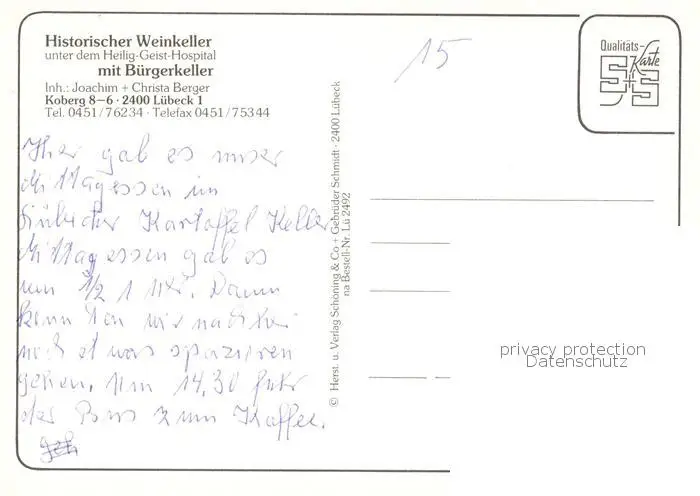 Historischer Weinkeller
unter dem Heilig-Geist-Hospital
mit Bürgerkeller
Inh.: Joachim + Christa Berger
Koberg 8–6 · 2400 Lübeck 1
Tel. 0451/76234 · Telefax 0451/75344
15
Qualitäts-
Karte
S+S
Hier gab es unser
Mittagessen im
Lübecker Kartoffel Keller
Mittagessen gab es
um 1/2 1 Uhr. Dann
konnten wir nachher
noch etwas spazieren
gehen. Um 14,30 fuhr
der Bus zum Kaffee.
© Herst. u. Verlag Schöning & Co + Gebrüder Schmidt · 2400 Lübeck
na Bestell-Nr. Lü 2492
privacy protection
Datenschutz